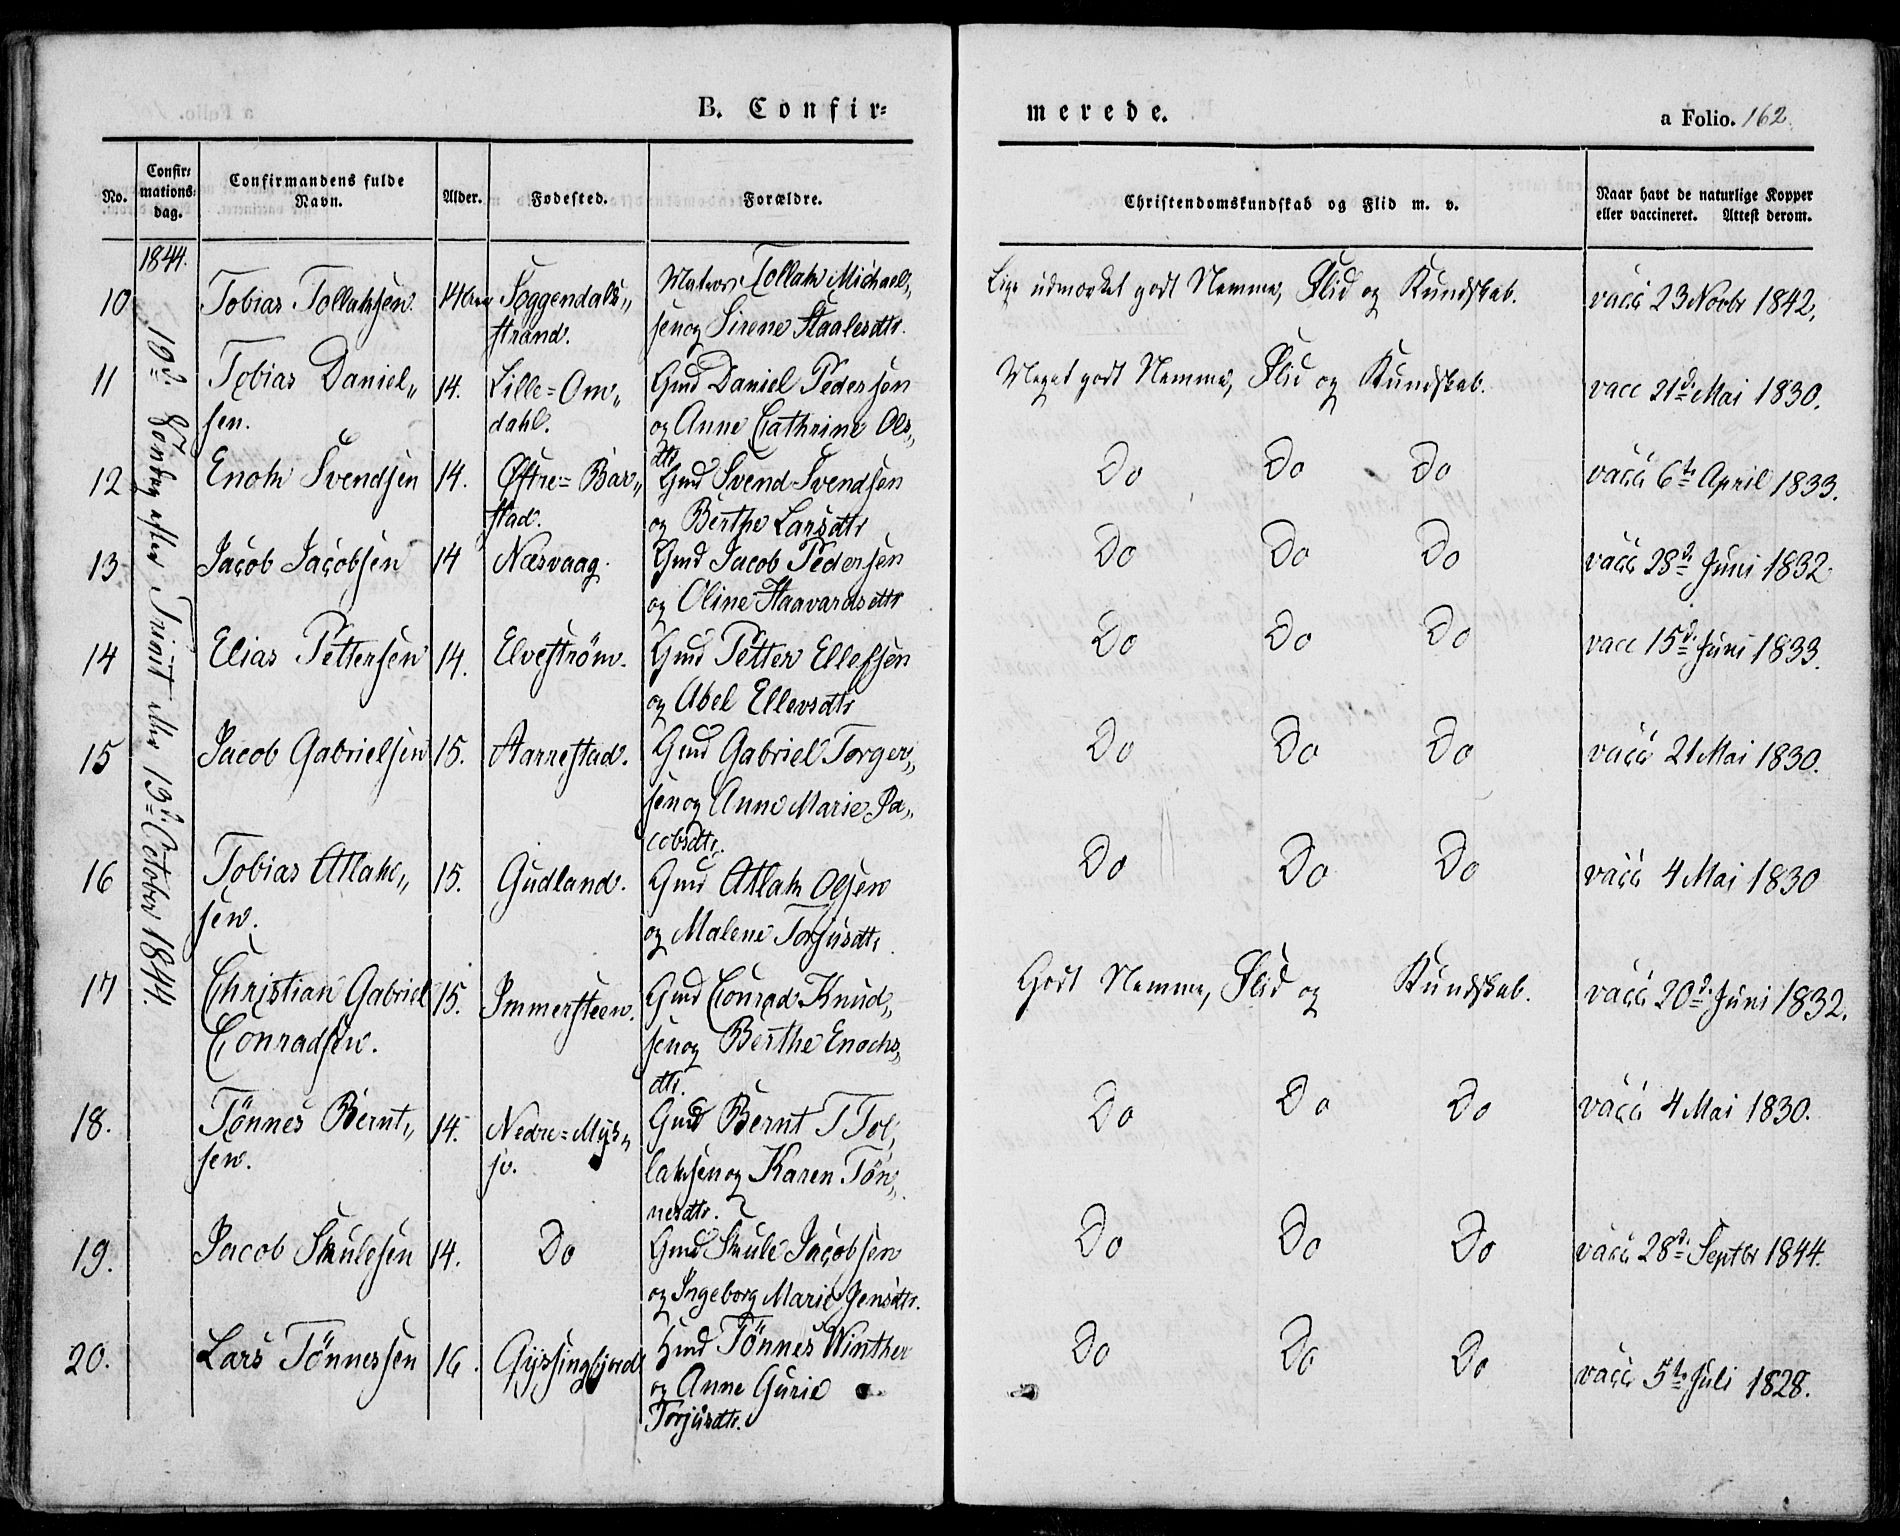 B. Confir=
merede.
a Folio. 162
No.
Confir=
mations=
dag.
Confirmandens fulde
Navn.
Alder.
Fødested.
Forældre.
Christendomskundskab og Flid m. v.
Naar havt de naturlige Kopper
eller vaccineret. Attest derom.
1844.
10de Søndag efter Trinit eller 13de October 1844.
10 Tobias Tollaksen. 14 Soggendals„ Tollak Michael„ udmærket godt Nemme, Flid og Kundskab. vacc 23 Novbr 1842.
strand. sen og Sirene Staalesdtr.
11 Tobias Daniel„ 14. Lille=Om„ Gmd Daniel Pedersen Meget godt Nemme, Flid og Kundskab. vacc 21d Mai 1830.
sen. dahl. og Anne Cathrine Ols„
dtr
12 Enok Svendsen 14. Østre=Bar„ Gmd Svend Svendsen Do Do Do vacc 6te April 1833.
stad. og Berthe Larsdtr
13 Jacob Jacobsen 14 Næsvaag. Gmd Jacob Pedersen Do Do Do vacc 28d Juni 1832
og Oline Haavardsdtr
14 Elias Pettersen 14. Elvestrøm. Gmd Petter Ellefsen Do Do Do vacc 15d Juni 1833.
og Abel Ellevsdtr
15 Jacob Gabrielsen 15. Aarrestad. Gmd Gabriel Torger„ Do Do Do vacc 21 Mai 1830.
sen og Anne Marie Ja„
cobsdtr.
16 Tobias Atlak„ 15. Gudland. Gmd Atlak Olsen Do Do Do vacc 4 Mai 1830
sen. og Malene Torjusdtr
17 Christian Gabriel 15. Immersteen. Gmd Conrad Knud„ Godt Nemme, Flid og Kundskab. vacc 20d Juni 1832.
Conradsen. sen og Berthe Enochs„
dtr.
18. Tönnes Bernt„ 14. Nedre=Mys„ Gmd Bernt T Tol„ Do Do Do vacc 4 Mai 1830.
sen. se. laksen og Karen Tön„
nesdtr.
19. Jacob Skulesen 14. Do Gmd Skule Jacobsen Do Do Do vacc 28d Septbr 1844.
og Ingeborg Marie Jensdtr.
20. Lars Tönnessen 16. Gyssingfjord Tönnes Winther Do Do Do vacc 5te Juli 1828.
og Anne Gurie
Torjusdtr.